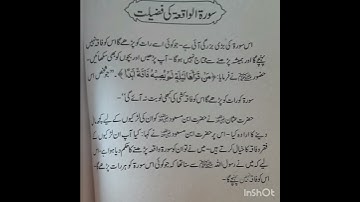 سورۃ الواقعۃ کی فضیلت
اس سورۃ کی بڑی بزرگی آئی ہے۔ جو کوئی اسے رات کو پڑھے گا اس کو فاقہ نہیں
پہنچے گا اور ہمیشہ پڑھنے سے محتاج نہیں ہو گا۔ آپ پڑھیں اور بچوں کو بھی سکھائیں۔
حضور ﷺ نے فرمایا: ﴿مَنْ قَرَأَهَا لَيْلَةً لَمْ يُصِبْهُ فَاقَةٌ اَبَدًا﴾۔ ”جو شخص اس
سورۃ کو رات کو پڑھے گا اس کو فاقہ کشی کی کبھی نوبت نہ آئے گی“۔
حضرت عثمان نے حضرت ابن مسعود کو ان کی لڑکیوں کے لیے کچھ مال
دینے کا ارادہ کیا۔ حضرت ابن مسعود نے کہا کیا آپ ان لڑکیوں کے
فقر و فاقہ کا خیال کرتے ہیں۔ میں نے تو ان کو سورۃ واقعہ پڑھنے کا حکم دیا ہوا ہے، اس
لیے کہ میں نے رسول اللہ ﷺ سے سنا تھا کہ جو کوئی اس سورۃ کو ہر رات پڑھے گا۔
اس کو فاقہ نہیں پہنچے گا۔
InShOt